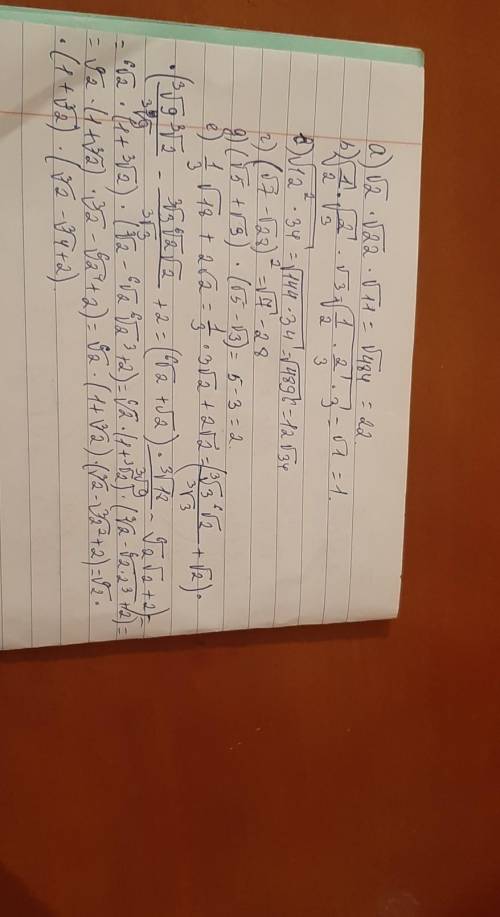 а) √2 · √22 · √11 = √484 = 22.
б) √(1/2) · √(2/3) · √3 = √(1/2 · 2/3 · 3) = √1 = 1.
в) √(12² · 34) = √(144 · 34) = √4896 = 12√34
г) (√7 - √28)² = √7 - 28
д) (√5 + √3) · (√5 - √3) = 5 - 3 = 2.
е) 1/3 √18 + 2√2 = 1/3 · 3√2 + 2√2 = (∛3 ⁶√2 / ∛3 + √2) ·
· (∛9 ∛2 / ∛9 - ∛3 ⁶√2 √2 / ∛3 + 2) = (⁶√2 + √2) · ∛18 / ∛9 - ⁶√2 √2 + 2) =
= ⁶√2 · (1 + ∛2) · (∛2 - ⁶√2 ⁶√2³ + 2) = ⁶√2 · (1 + ∛2) · (∛2 - ⁶√2·2³ + 2) =
= ⁶√2 · (1 + ∛2) · ∛2 - ⁶√2⁴ + 2) = ⁶√2 · (1 + ∛2) (∛2 - ∛2² + 2) = ⁶√2 ·
· (1 + ∛2) · (∛2 - ∛4 + 2).